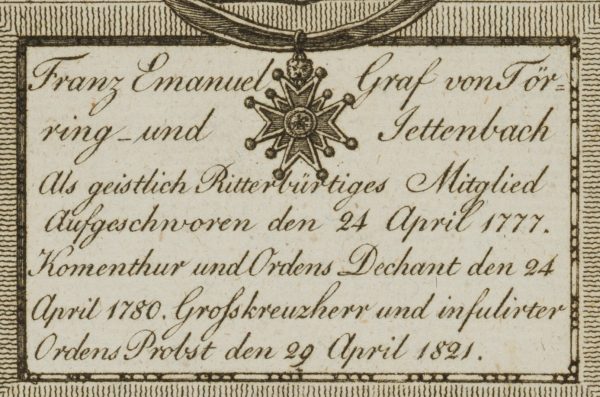 Franz Emanuel Graf von Tör-
ring-und Jettenbach
Als geistlich Ritterbürtiges Mitglied
Aufgeschworen den 24 April 1777.
Komenthur und Ordens Dechant den 24
April 1780. Groſskreuzherr und infulirter
Ordens Probst den 29 April 1821.